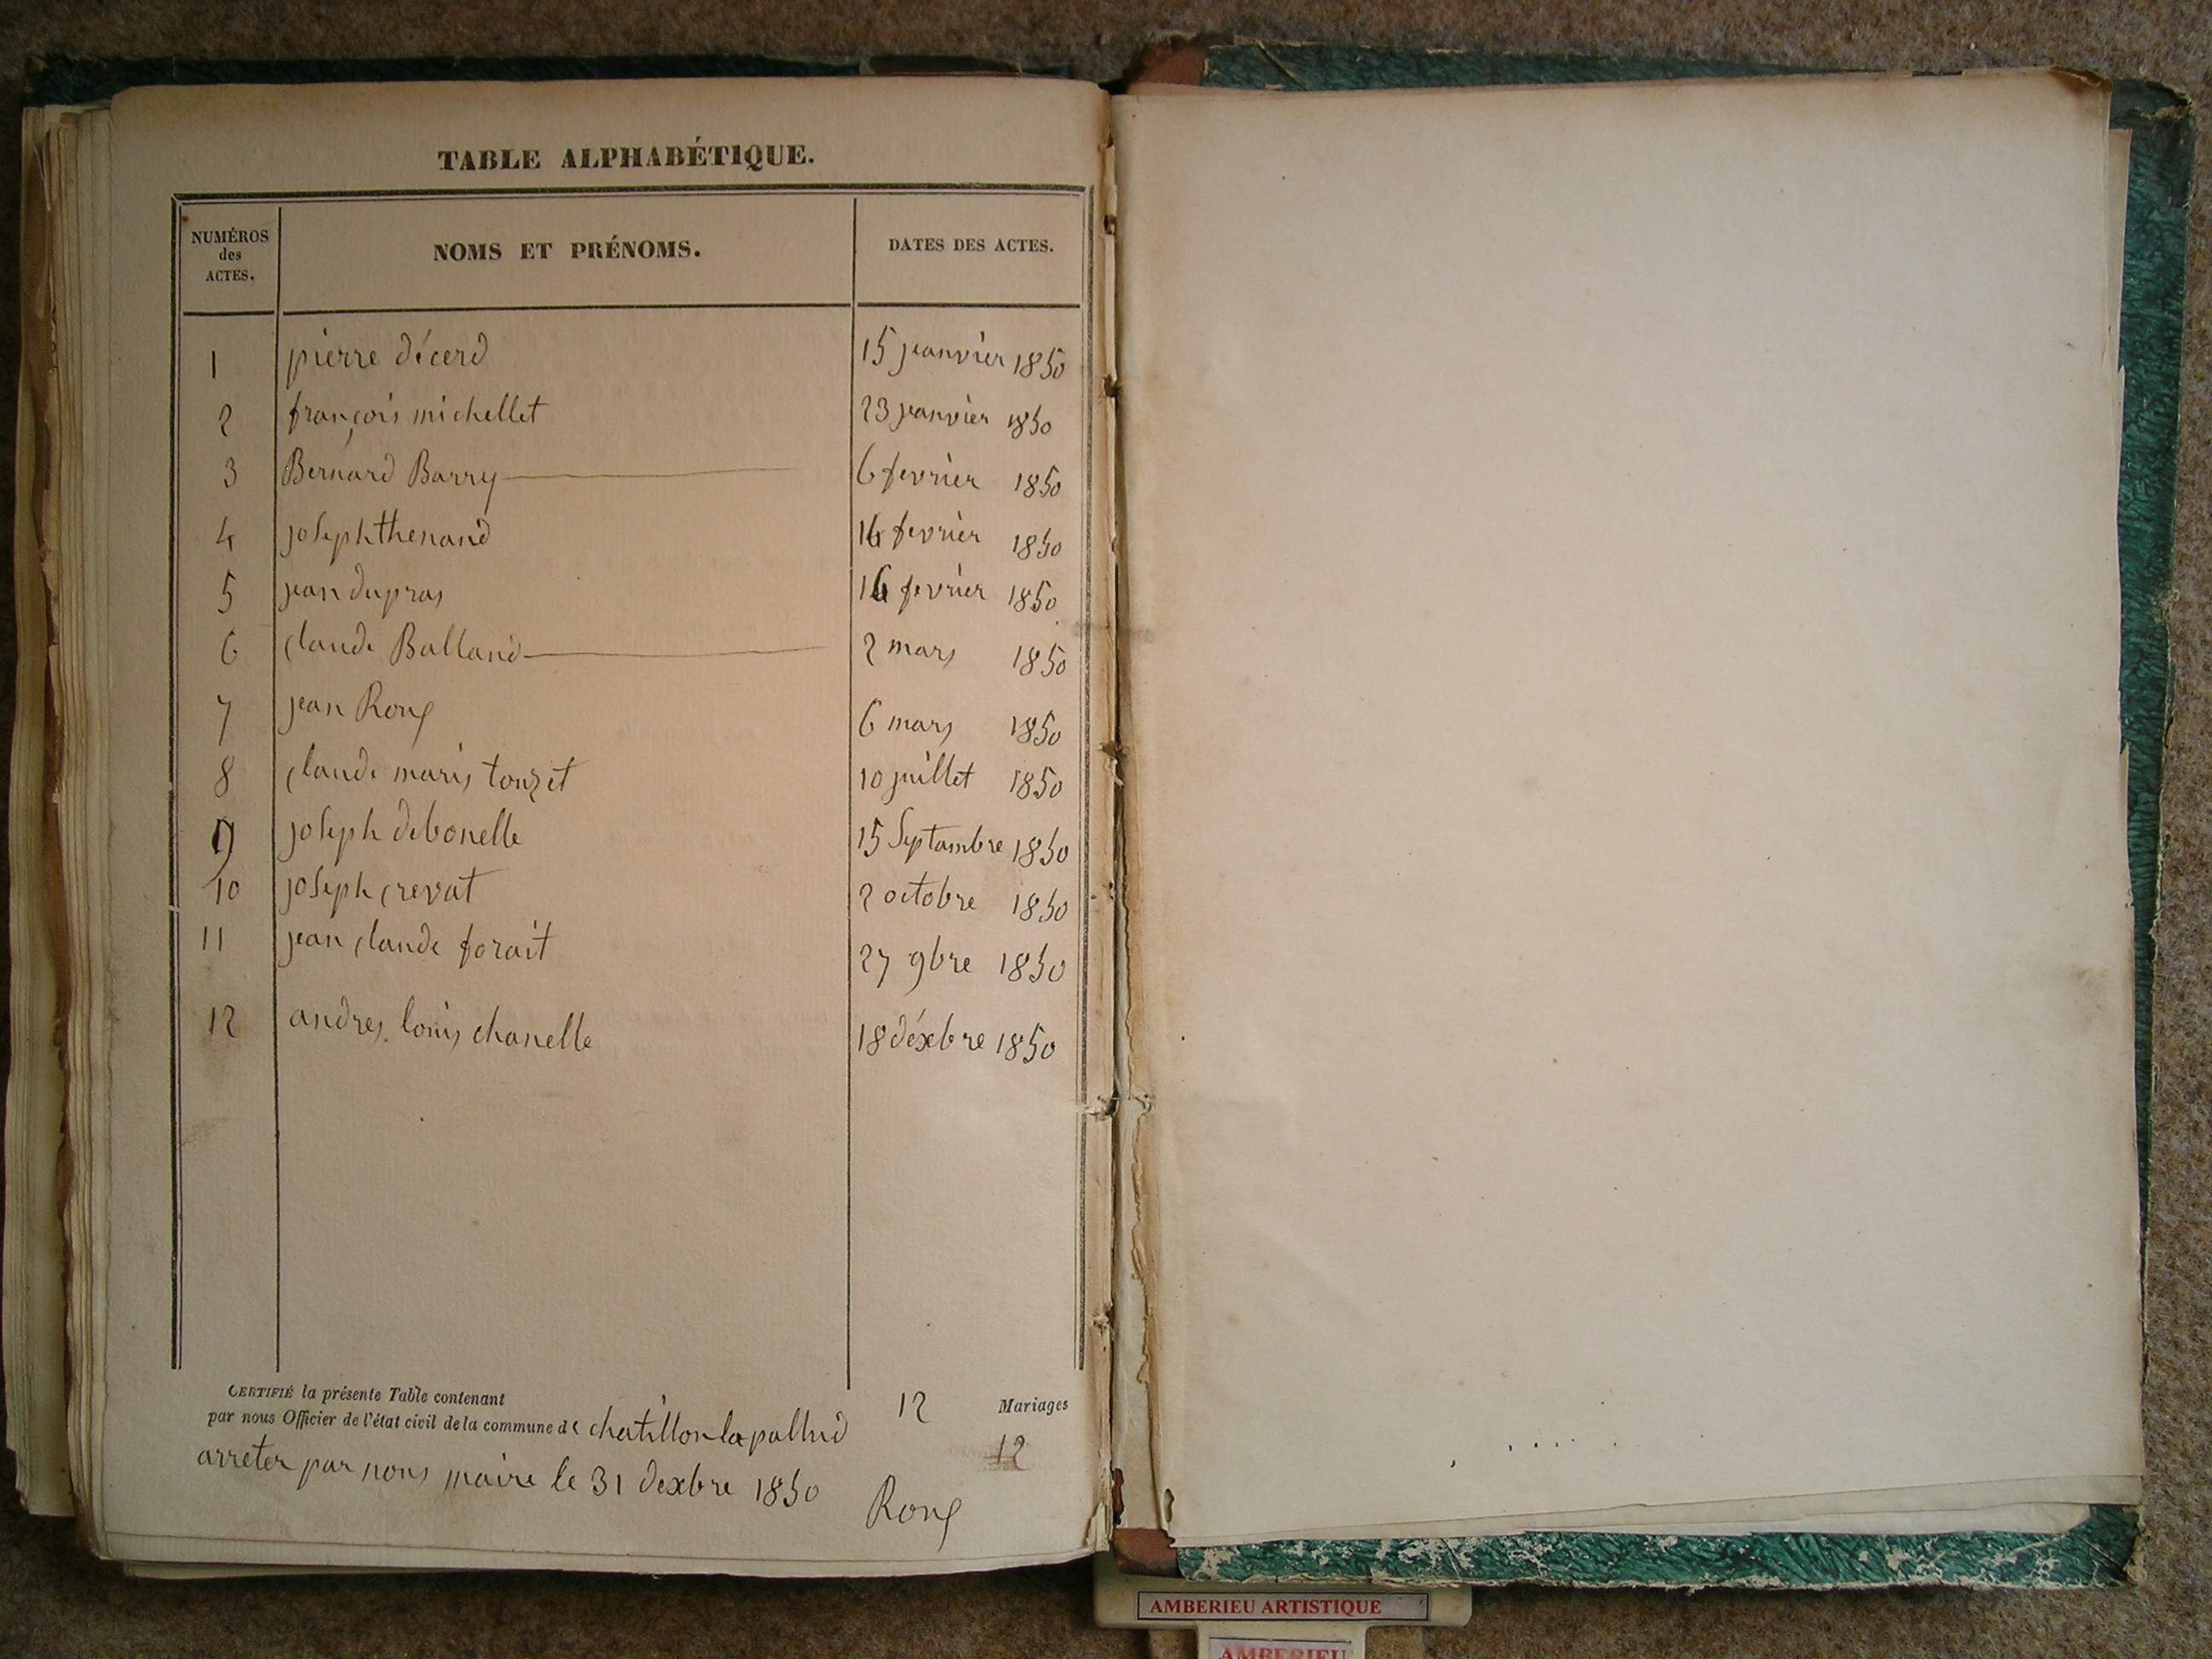 TABLE ALPHABÉTIQUE.
NUMÉROS des ACTES. NOMS ET PRÉNOMS. DATES DES ACTES.
1 pierre décerd 15 janvier 1850
2 françois michellet 23 janvier 1850
3 Bernard Barry 6 fevrier 1850
4 joseph thenand 16 fevrier 1850
5 jean dupras 16 fevrier 1850
6 claude Balland 2 mars 1850
7 jean Roux 6 mars 1850
8 claude maris touzet 10 juillet 1850
9 joseph debonelle 15 Septambre 1850
10 joseph crevat 2 octobre 1850
11 jean claude forait 27 9bre 1850
12 andres louis chanelle 18 déxbre 1850
CERTIFIÉ la présente Table contenant 12 Mariages
par nous Officier de l'état civil de la commune de chatillon la pallud
12
arreter par nous maire le 31 dexbre 1850
Roux
AMBERIEU ARTISTIQUE
AMBERIEU